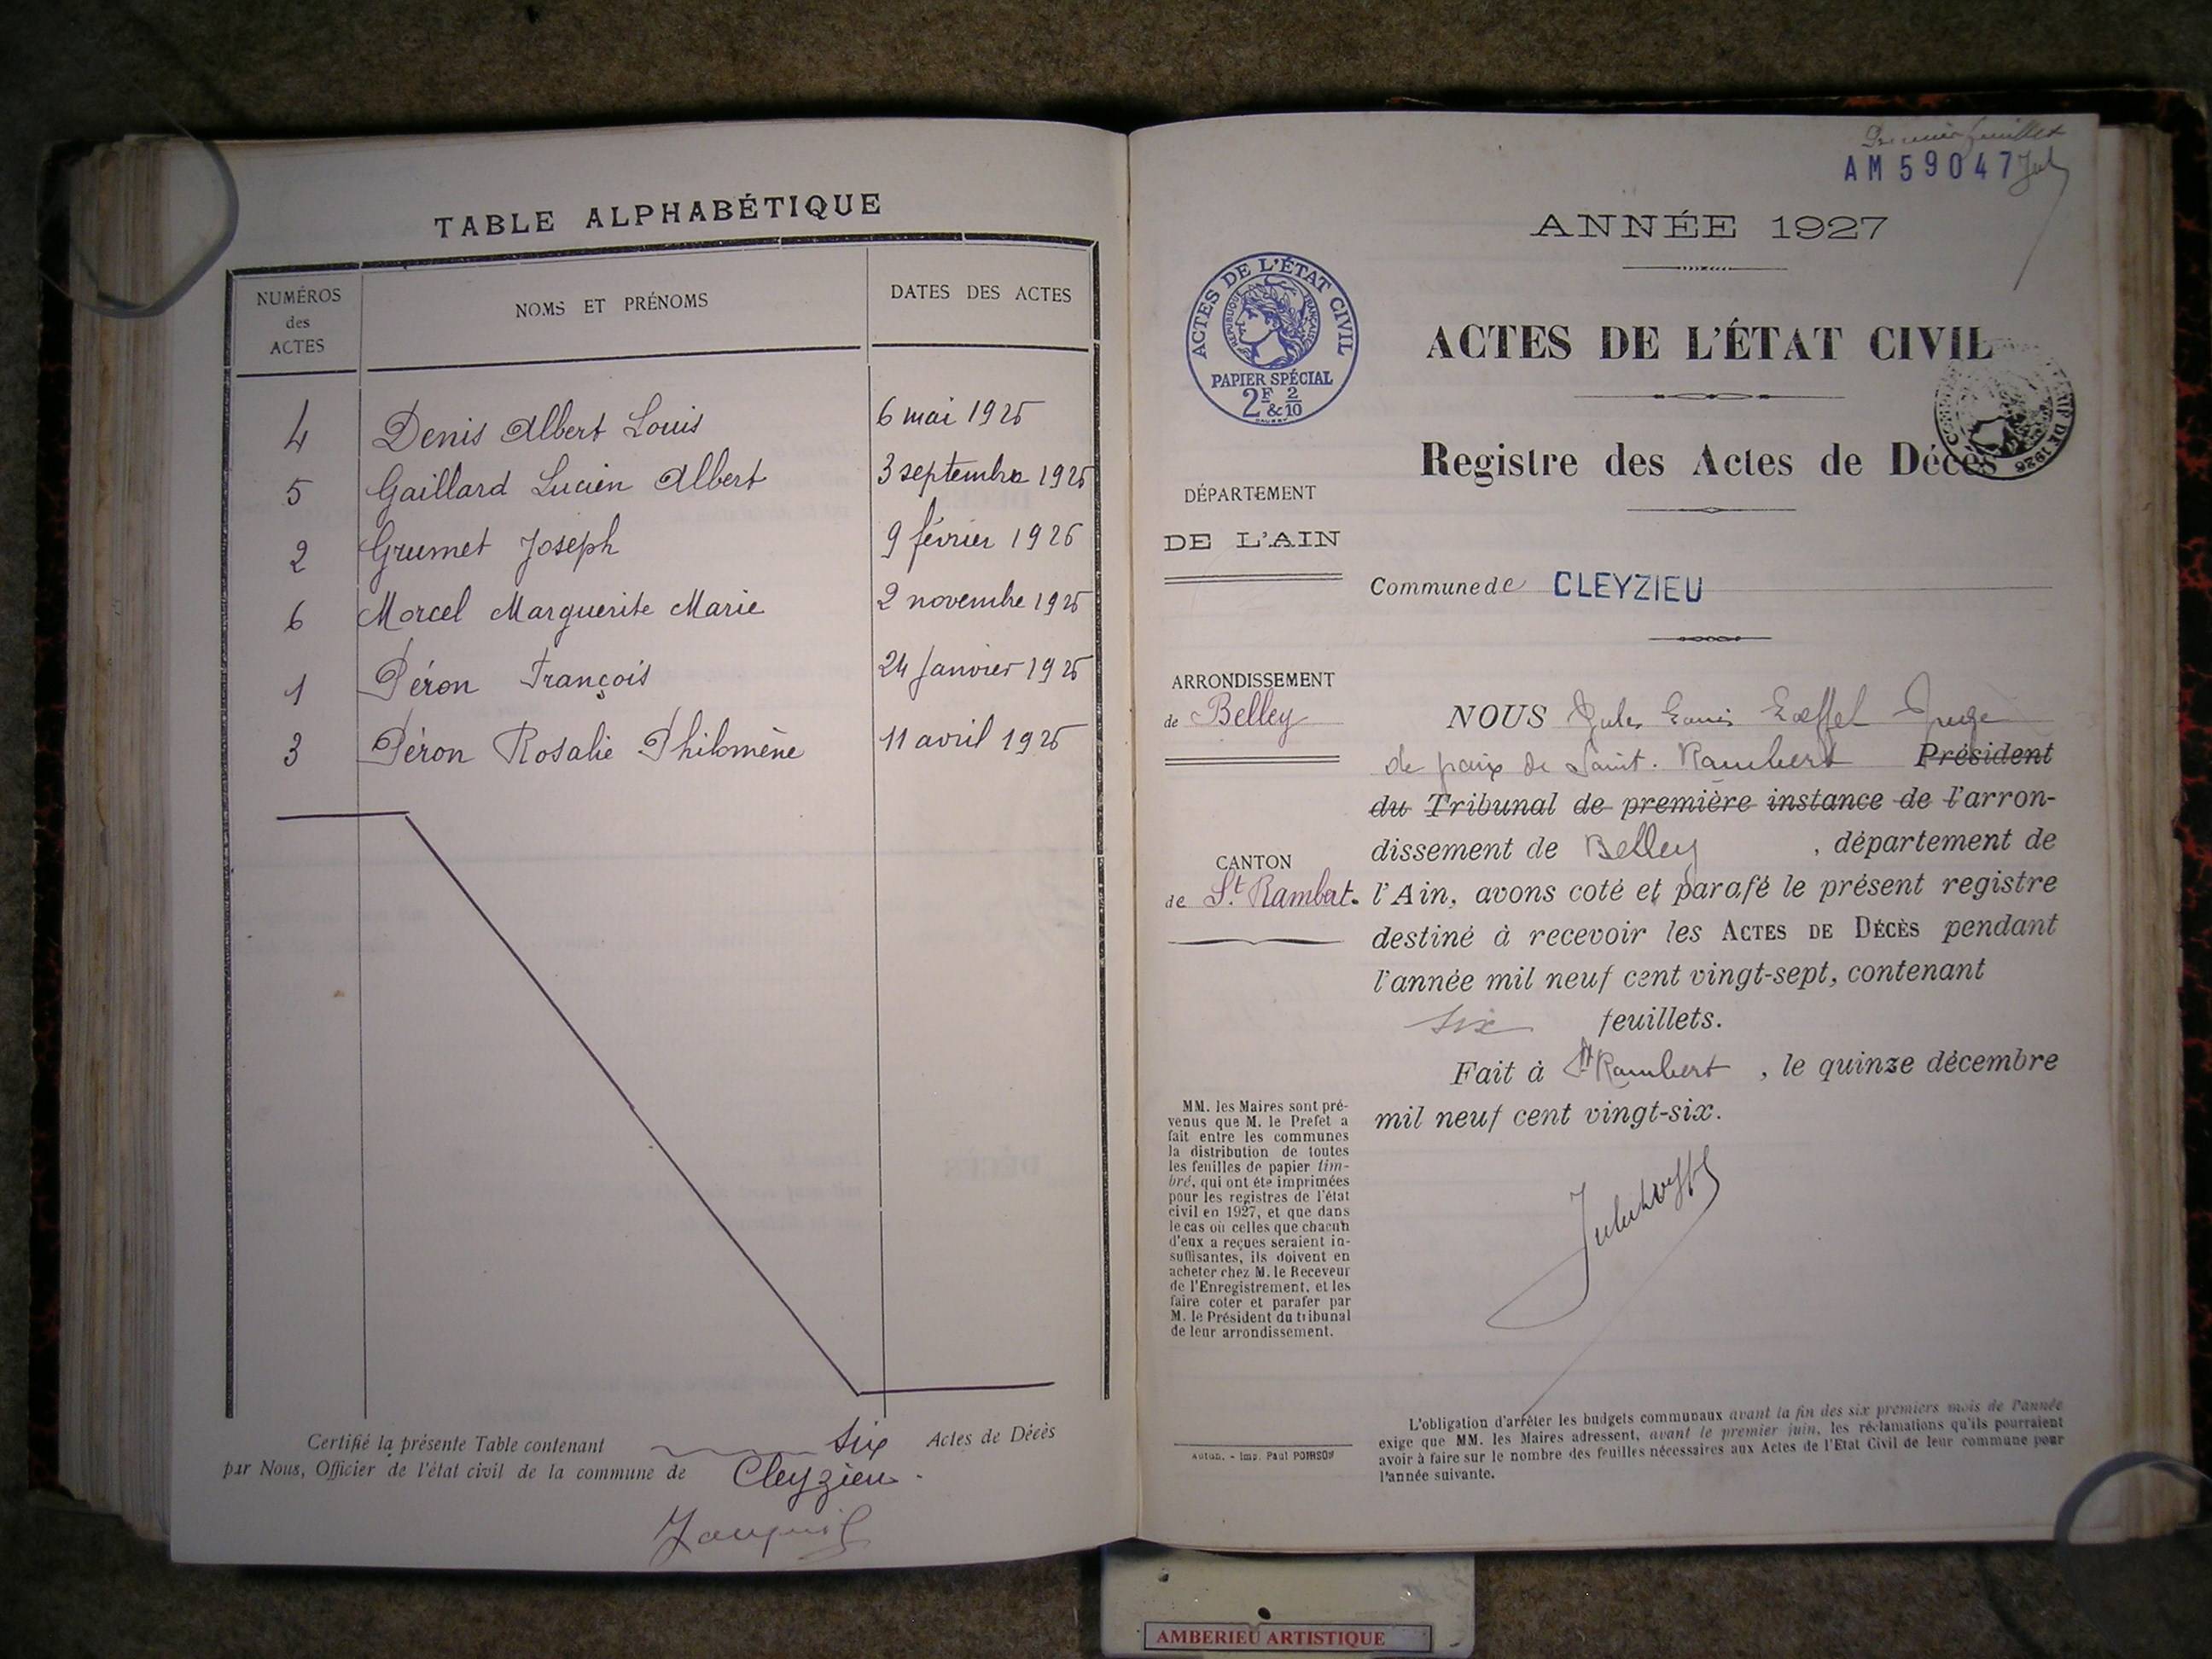 TABLE ALPHABÉTIQUE
NUMÉROS des ACTES
NOMS ET PRÉNOMS
DATES DES ACTES
4 Denis Albert Louis 6 mai 1926
5 Gaillard Lucien Albert 3 septembre 1926
2 Grumet Joseph 9 février 1926
6 Morcel Marguerite Marie 2 novembre 1926
1 Péron François 24 Janvier 1926
3 Péron Rosalie Philomène 11 avril 1926
Certifié la présente Table contenant six Actes de Décès
par Nous, Officier de l'état civil de la commune de Cleyzieu.
Premier feuillet
AM 59047
ANNÉE 1927
ACTES DE L'ÉTAT CIVIL
RÉPUBLIQUE FRANÇAISE
PAPIER SPÉCIAL
2F & 2/10
ACTES DE L'ÉTAT CIVIL
Registre des Actes de Décès
DÉPARTEMENT
DE L'AIN
Commune de CLEYZIEU
ARRONDISSEMENT
de Belley
CANTON
de St. Rambert.
NOUS Jules Louis Lœffel Juge
de paix de Saint-Rambert Président
du Tribunal de première instance de l'arron-
dissement de Belley, département de
l'Ain, avons coté et parafé le présent registre
destiné à recevoir les ACTES DE DÉCÈS pendant
l'année mil neuf cent vingt-sept, contenant
six feuillets.
Fait à St Rambert, le quinze décembre
mil neuf cent vingt-six.
MM. les Maires sont pré-
venus que M. le Préfet a
fait entre les communes
la distribution de toutes
les feuilles de papier tim-
bré, qui ont été imprimées
pour les registres de l'état
civil en 1927, et que dans
le cas où celles que chacun
d'eux a reçues seraient in-
suffisantes, ils doivent en
acheter chez M. le Receveur
de l'Enregistrement, et les
faire coter et parafer par
M. le Président du tribunal
de leur arrondissement.
Autun. - Imp. Paul POIRSON
L'obligation d'arrêter les budgets communaux avant la fin des six premiers mois de l'année
exige que MM. les Maires adressent, avant le premier juin, les réclamations qu'ils pourraient
avoir à faire sur le nombre des feuilles nécessaires aux Actes de l'Etat Civil de leur commune pour
l'année suivante.
AMBERIEU ARTISTIQUE